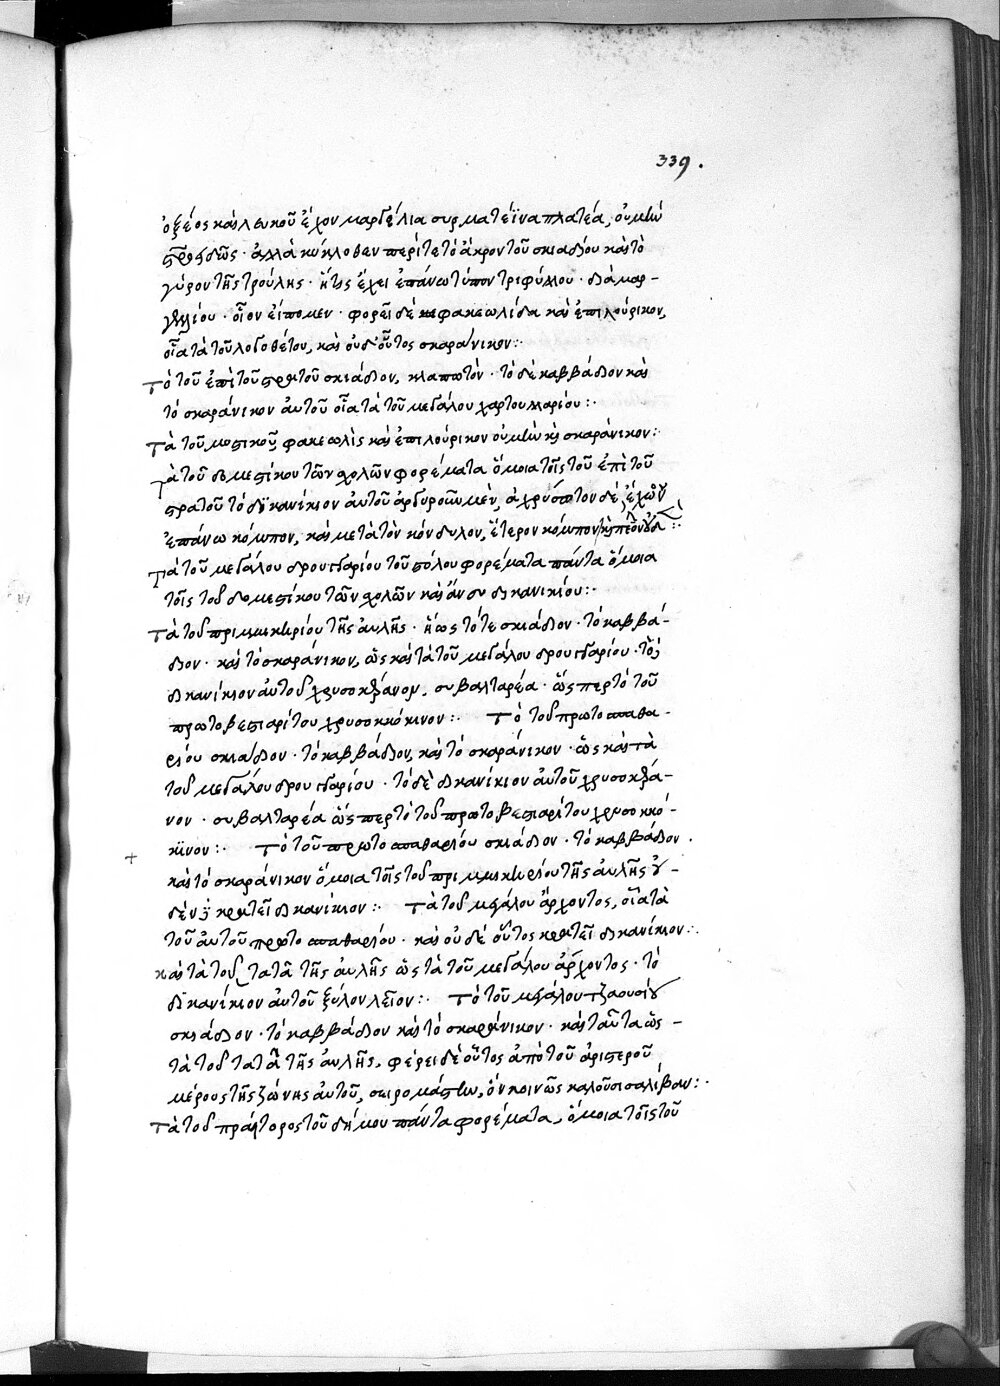 339.
ὀξέος καὶ λευκοῦ ἔχον μαργέλια συρματέϊνα πλατέα, οὐ μὴν
δὲ ἀλλὰ κύκλοθεν περί τε τὸ ἄκρον τοῦ σκιαδίου καὶ τὸ
γύρον τῆς τρούλης · ἥτις ἔχει ἐπάνω τύπον τριφύλλου · διὰ μαρ-
γελλίου · οἷον εἴπομεν · φορεῖ δὲ φακεωλίδα καὶ ἐπιλούρικον,
οἷα τὰ τοῦ λογοθέτου, καὶ οὐδ' οὗτος σκαράνικον:·
Τὸ τοῦ ἐπὶ τοῦ στρατοῦ σκιάδιον, κλαπωτόν · τὸ δὲ καββάδιον καὶ
τὸ σκαράνικον αὐτοῦ οἷα τὰ τοῦ μεγάλου χαρτουλαρίου:·
Τὰ τοῦ μυστικοῦ φακεωλὶς καὶ ἐπιλούρικον οὐ μὴν καὶ σκαράνικον:·
Τὰ τοῦ δομεστίκου τῶν σχολῶν φορέματα ὅμοια τοῖς τοῦ ἐπὶ τοῦ
στρατοῦ τὸ δικανίκιον αὐτοῦ ἀργυροῦν μὲν, ἀχρύσωτον δὲ, ἔχων
ἐπάνω κόμπον, καὶ μετὰ τὸν κόνδυλον, ἕτερον κόμπον
Τὰ τοῦ μεγάλου δρουγγαρίου τοῦ στόλου φορέματα πάντα ὅμοια
τοῖς τοῦ δομεστίκου τῶν σχολῶν καὶ ἄνευ δικανικίου:·
Τὰ τοῦ πριμμικηρίου τῆς αὐλῆς · ἤως τό τε σκιάδιον · τὸ καββά-
διον · καὶ τὸ σκαράνικον, ὡς καὶ τὰ τοῦ μεγάλου δρουγγαρίου · τὸ
δικανίκιον αὐτοῦ χρυσοκυάνον, συβαλταρέα · ὥσπερ τὸ τοῦ
πρωτοβεστιαρίτου χρυσοκκόκινον:· Τὸ τοῦ πρωτοσπαθα-
ρίου σκιάδιον · τὸ καββάδιον, καὶ τὸ σκαράνικον · ὡς καὶ τὰ
τοῦ μεγάλου δρουγγαρίου · τὸ δὲ δικανίκιον αὐτοῦ χρυσοκυά-
νον · συβαλταρέα ὥσπερ τὸ τοῦ πρωτοβεστιαρίτου χρυσοκκό-
κϊνον:· Τὸ τοῦ πρωτοσπαθαρίου σκιάδιον · τὸ καββάδιον ·
καὶ τὸ σκαράνικον ὅμοια τοῖς τοῦ πριμμικηρίου τῆς αὐλῆς οὐ-
δὲν κρατεῖ δικανίκιον:· Τὰ τοῦ μεγάλου ἄρχοντος, οἷα τὰ
τοῦ αὐτοῦ πρωτοσπαθαρίου · καὶ οὐδὲ οὗτος κρατεῖ δικανίκιον:·
καὶ τὰ τοῦ τατᾶ τῆς αὐλῆς ὡς τὰ τοῦ μεγάλου ἄρχοντος · τὸ
δικανίκιον αὐτοῦ ξύλον λεῖον:· Τὸ τοῦ μεγάλου τζαουσίου
σκιάδιον · τὸ καββάδιον καὶ τὸ σκαράνικον · καὶ ταῦτα ὡς -
τὰ τοῦ τατᾶ τῆς αὐλῆς. φέρει δὲ οὗτος ἀπὸ τοῦ ἀριστεροῦ
μέρους τῆς ζώνης αὐτοῦ, σιρομάστην, ὃν κοινῶς καλοῦσι σαλίβαν:·
Τὰ τοῦ πραίτορος τοῦ δήμου πάντα φορέματα, ὅμοια τοῖς τοῦ